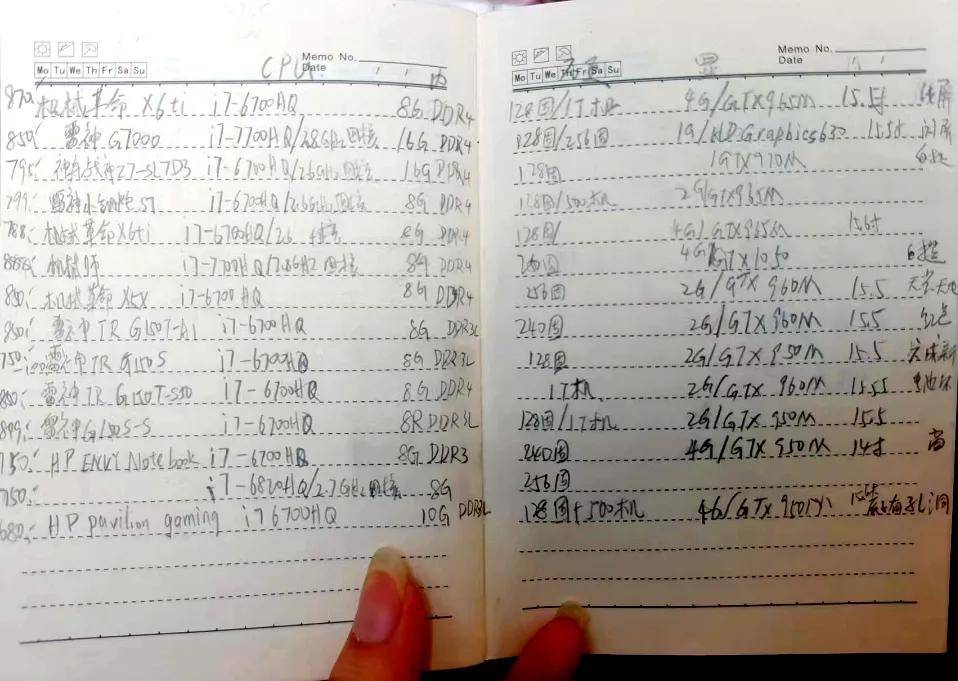 Memo No.
Date
Mo Tu We Th Fr Sa Su
CPU 内
870. 机械革命 X6ti i7-6700HQ 8G DDR4
850. 雷神 G7000 i7-7700HQ/2.8GHz 四核 16G DDR4
795. 神舟战神Z7-SL7D3 i7-6700HQ/2.6GHz 四核 16G DDR4
799. 雷神小钢炮 ST i7-6700HQ/2.6GHz 四核 8G DDR4
788. 机械革命X6ti i7-6700HQ/2.6 四核 8G DDR4
机械师 i7-7700HQ/2.8GHz 四核 8G DDR4
850. 机械革命 X5X i7-6700HQ 8G DDR4
850. 雷神 TR G150T-A1 i7-6700HQ 8G DDR3L
750. 雷神TR G150S i7-6700HQ 8G DDR3L
850. 雷神 TR G150T-S50 i7-6700HQ 8G DDR4
899. 雷神G150S-S i7-6700HQ 8R DDR3L
750. HP ENVY Notebook i7-6700HQ 8G DDR3
750. i7-6820HQ/2.7GHz 四核 8G
680. HP pavilion gaming i7 6700HQ 10G DDR3L
Memo No.
Date
Mo Tu We Th Fr Sa Su
显
128固/1T机 4G/GTX965M 15.5寸
128固/256固 1G/HD.Graphics630 15.5寸 闪屏
128固 1GTX970M
128固/500机 2G/GTX965M
128固/ 4G/GTX965M 15.6寸
4G/GTX1050
256固 2G/GTX960M 15.5
240固 2G/GTX960M 15.5 红点
128固 2G/GTX950M 15.5
1T机 2G/GTX960M 15.5 电池坏
128固/1T机 2G/GTX950M 15.5
240固 4G/GTX950M 14寸
256固
128固+500机 4G/GTX950M 15.6寸